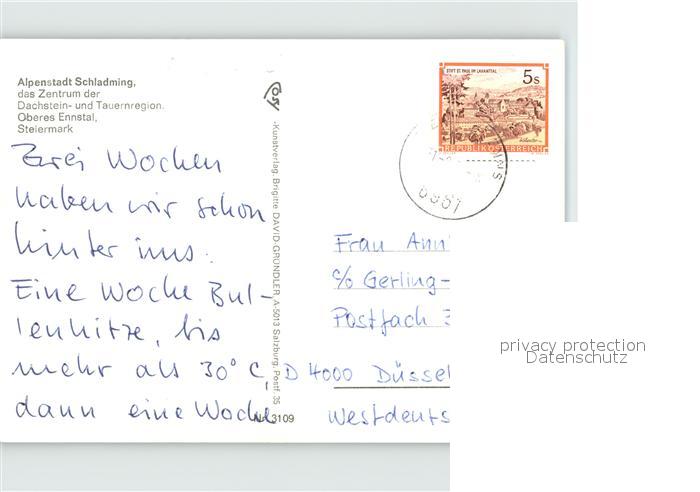 Alpenstadt Schladming,
das Zentrum der
Dachstein- und Tauernregion.
Oberes Ennstal,
Steiermark
Zwei Wochen
haben wir schon
hinter uns.
Eine Woche Bul-
lenhitze, bis
mehr als 30° C,
dann eine Woche
-Kunstverlag, Brigitte DAVID-GRÜNDLER, A-5013 Salzburg, Postf. 35
Nr. 3109
STIFT ST. PAUL IM LAVANTTAL
5 S
REPUBLIK ÖSTERREICH
Frau Ann
c/o Gerling-
Postfach
D 4000 Düssel
Westdeuts
privacy protection
Datenschutz